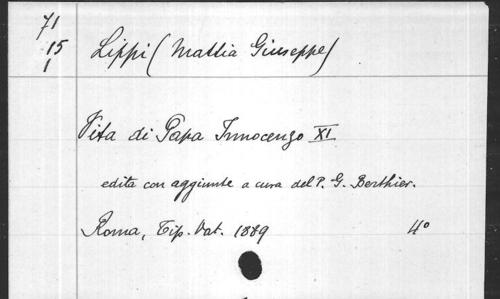 71
15
1
Lippi (Mattia Giuseppe)
Vita di Papa Innocenzo XI
edita con aggiunte a cura del P. G. Berthier.
Roma, Tip. Vat. 1889 4°